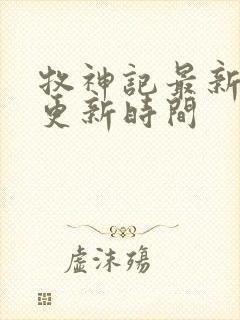 牧神記最新
更新時間
虛沫殤